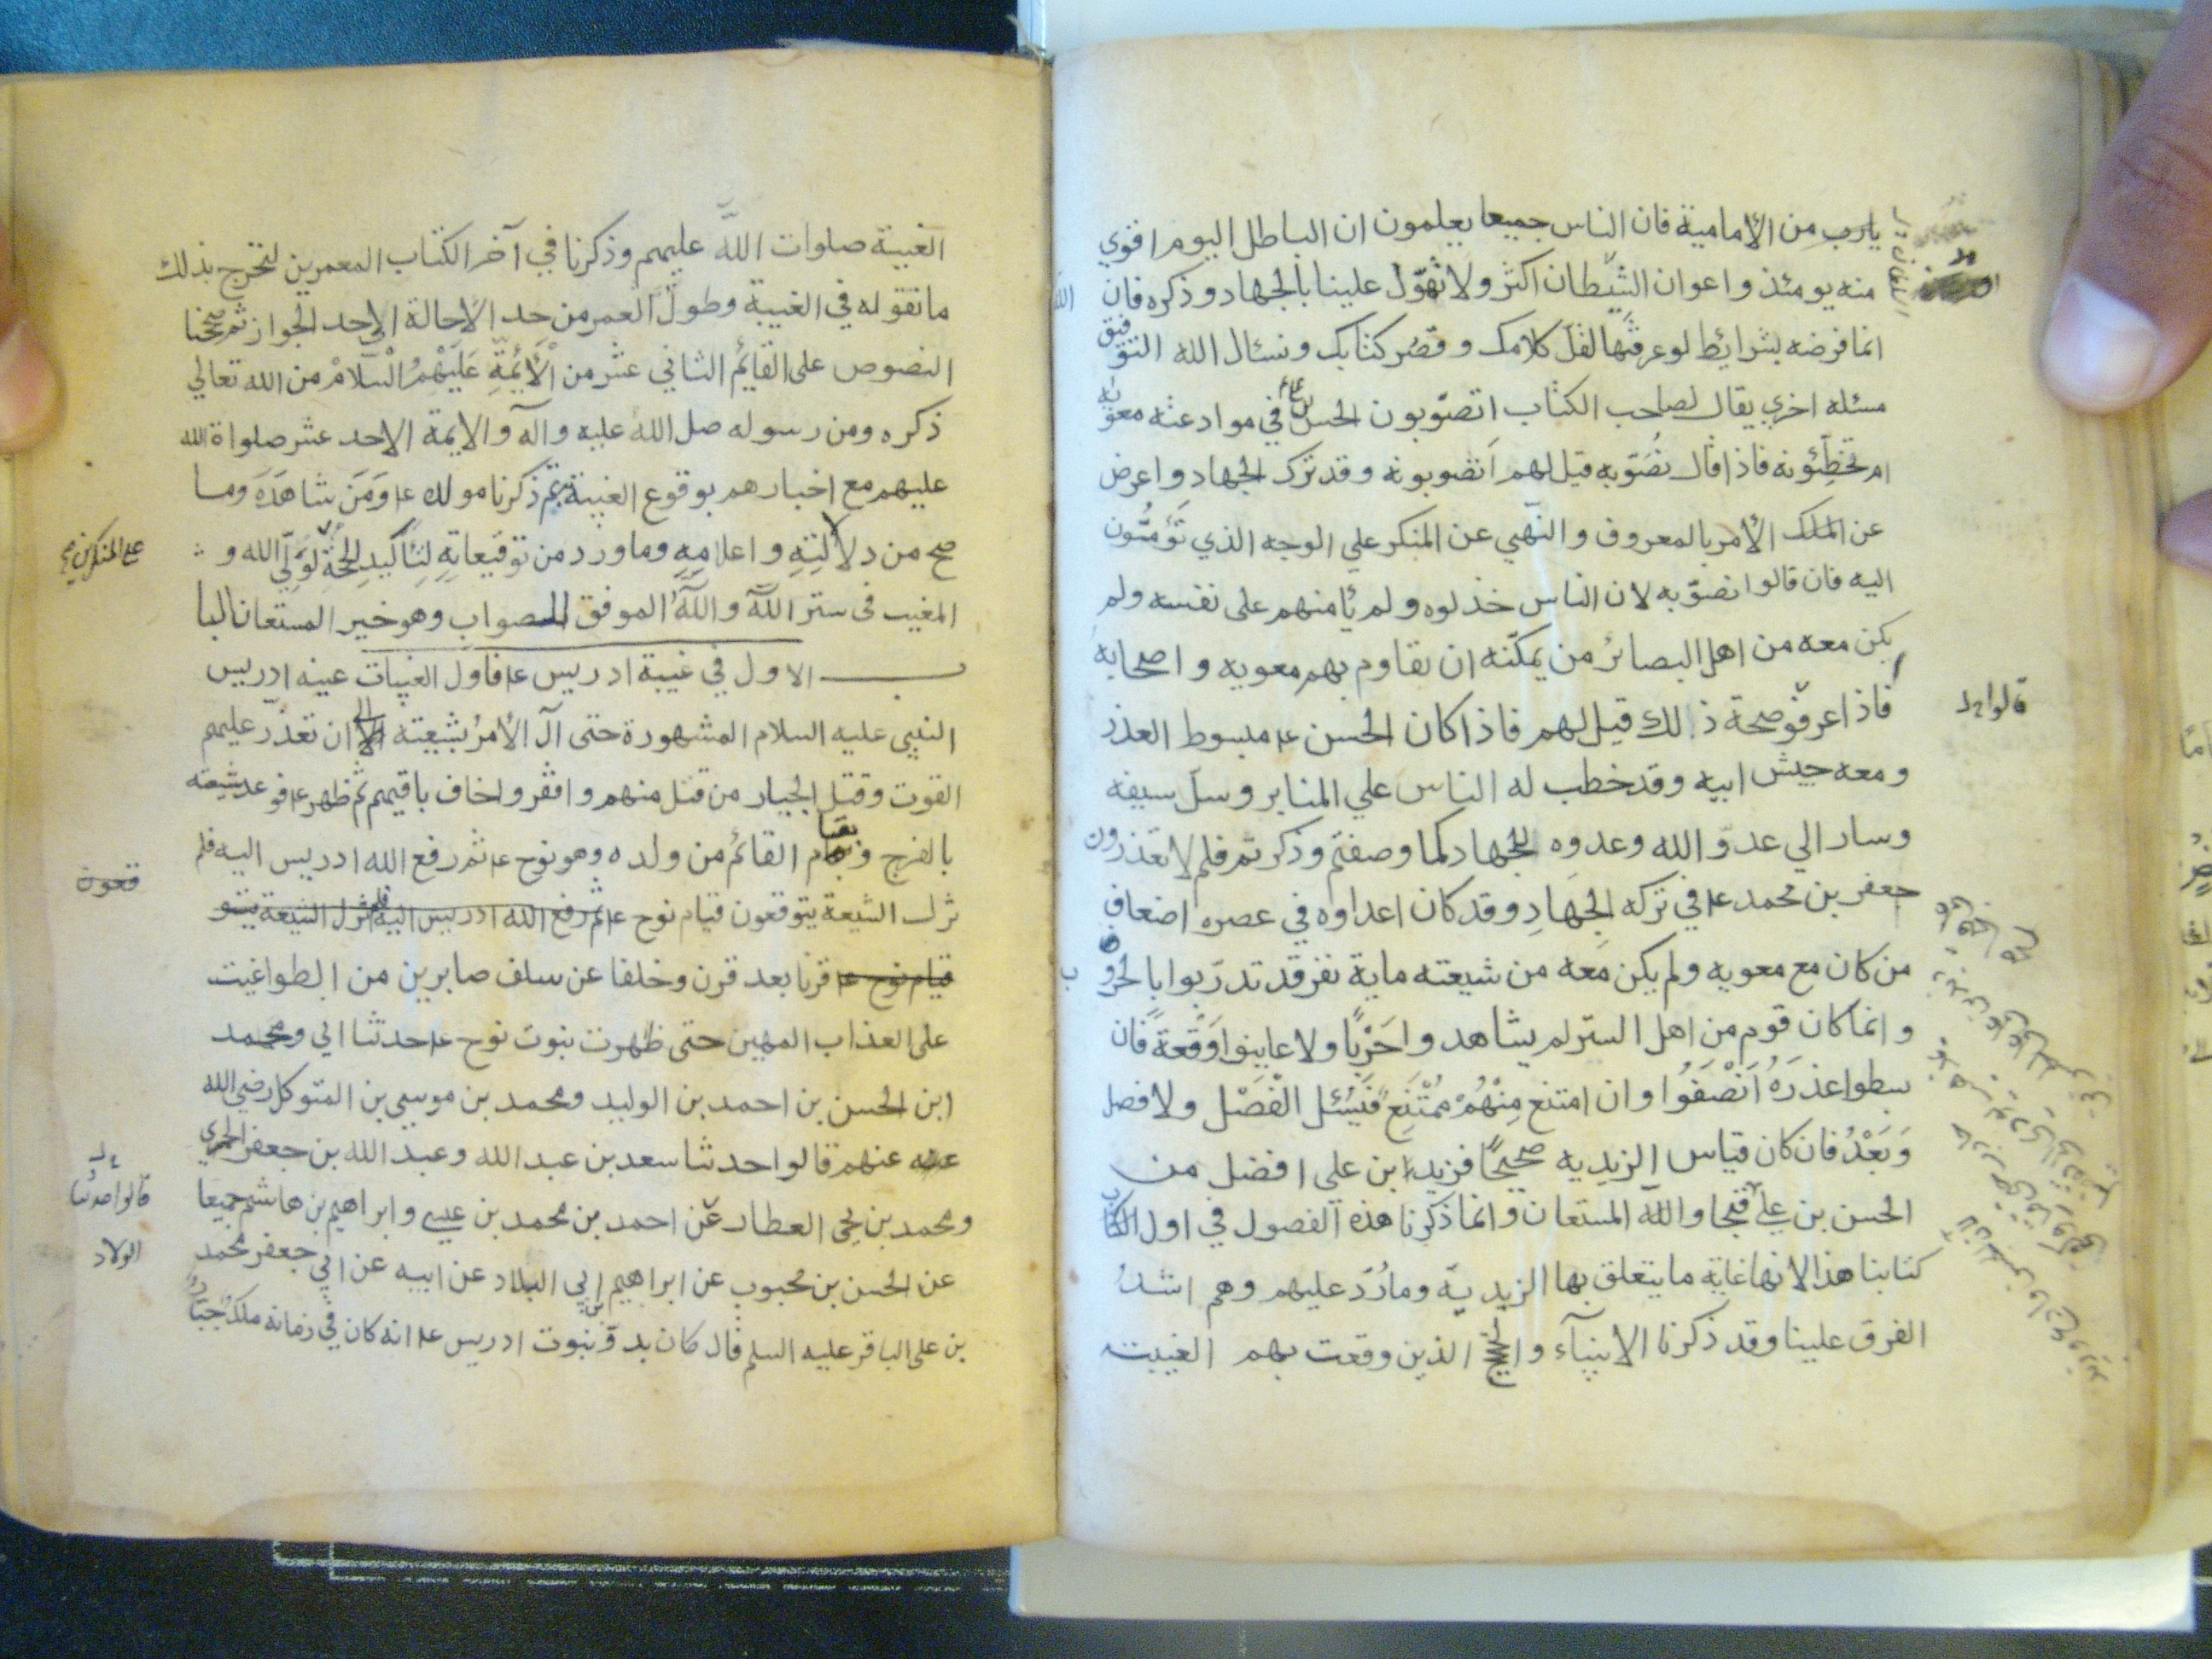 يارب من الأمامية فان الناس جميعا يعلمون ان الباطل اليوم اقوي
منه يومئذ واعوان الشيطان اكثر ولا تهوّل علينا بالجهاد وذكره فان الله
انما فرضه بشرائط لو عرفتها لقل كلامك وقصر كتابك ونسئال الله التوفيق
مسئله اخري يقال لصاحب الكتاب اتصوّبون الحسن بن علي في موادعته معويه
ام تخطئونه فاذا قال نصوّبه قيل لهم اتصوبونه وقد ترك الجهاد واعرض
عن الملك الأمر بالمعروف والنهي عن المنكر علي الوجه الذي تؤمتون
اليه فان قالوا نصوّبه لان الناس خذلوه ولم يأمنهم على نفسه ولم
يكن معه من اهل البصائر من يمكّنه ان يقاوم بهم معويه واصحابه
فاذا عرفو صحة ذلك قيل لهم فاذا كان الحسن ع مبسوط العذر
قالوا
ومعه جيش ابيه وقد خطب له الناس علي المنابر وسلّ سيفه
وسار الي عدوّ الله وعدوه للجهاد كما وصفتم وذكرتم فلم لا تعذرون
جعفر بن محمد ع في تركه الجهاد وقد كان اعداوه في عصره اضعاف
من كان مع معويه ولم يكن معه من شيعته ماية نفر قد تدرّبوا بالحروب
وانما كان قوم من اهل الستر لم يشاهدوا حَرْبًا ولا عاينوا وَقْعَةً فان
بسطوا عذرَهُ اَنْصَفُوا وان امتنع مِنْهُمْ مُمْتَنِعٌ فَسُئل الْفَصْل ولا فصل
وَبَعْدُ فان كان قياس الزيديه صحيحًا فزيد ابن علي افضل من
الحسن بن علي والله المستعان وانما ذكرنا هذه الفصول في اول الكتاب
كتابنا هذا لانها غاية ما يتعلق بها الزيديّة وما رُدّ عليهم وهم اشدُ
الفرق علينا وقد ذكرنا الانبيآء والحجج الذين وقعت بهم الغيبت
الغيبة صلوات اللّه عليهم وذكرنا في آخر الكتاب المعمرين لنخرج بذلك
ما نقوله في الغيبة وطول العمر من حد الاحالة الا حد الجواز ثم صححنا
النصوص على القايم الثاني عشر من الْأَئِمَّةِ عَلَيْهِمُ الْسَّلَامْ من الله تعالي
ذكره ومن رسوله صل الله عليه وآله والايمة الاحد عشر صلواة الله
عليهم مع اخبارهم بوقوع الغيبة ثم ذكرنا مولده ع وَمَن شاهَدَه وما
صح من دلالتِهِ واعلامِهِ وما ورد من توقيعاتِهِ لِتَاكيدِ الحجّة لوليّ الله و
على المنكرين
المغيب في ستر اللّه واللّه الموفق للصواب وهو خير المستعان البا
ب الاول في غيبة ادريس ع فاول الغيبات غيبه ادريس
النبي عليه السلام المشهورة حتى آل الأمر بشيعته الي ان تعذّر عليهم
القوت وقتل الجبار من قتل منهم وافقر واخاف باقيهم ثم ظهر ع فوعد شيعته
بالفرج وبقيام القائم من ولده وهو نوح ع ثم رفع الله ادريس اليه فلم
تزل الشيعة يتوقعون قيام نوح ع ثم رفع الله ادريس اليه فلم تزل الشيعة يتو
قعون
قيام نوح ع قرنا بعد قرن وخلفا عن سلف صابرين من الطواغيت
على العذاب المهين حتى ظهرت نبوت نوح ع حدثنا ابي ومحمد
ابن الحسن بن احمد بن الوليد ومحمد بن موسي بن المتوكل رضي الله
عنهم قالوا حدثنا سعد بن عبد الله وعبد الله بن جعفر الحميري
ومحمد بن يحى العطار عن احمد بن محمد بن عيسى وابراهيم بن هاشم جميعا
قالوا حدثنا
عن الحسن بن محبوب عن ابراهيم بن ابي البلاد عن ابيه عن ابي جعفر محمد
البلاد
بن على الباقر عليه السلم قال كان بدؤ نبوت ادريس ع انه كان في زمانه ملك جبّارٌ